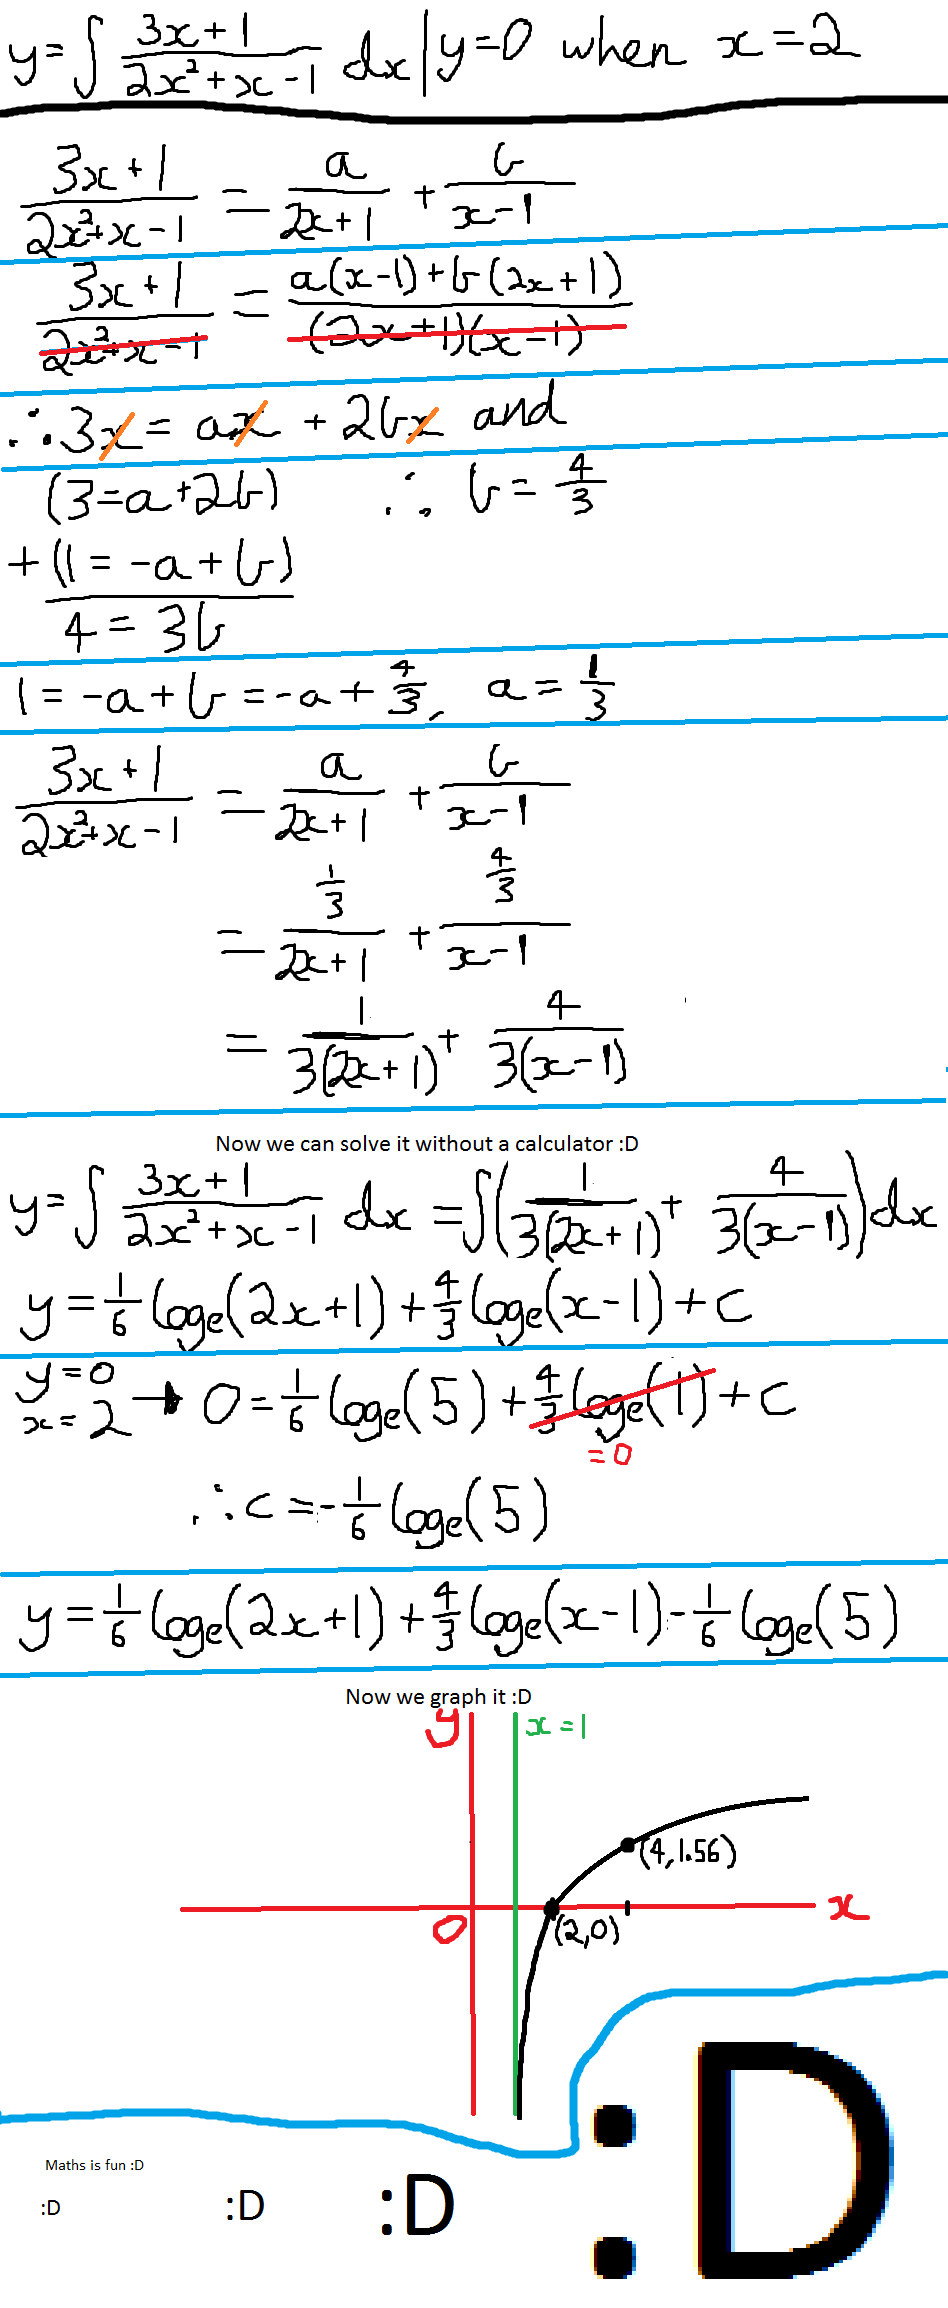 y = ∫ (3x+1)/(2x²+x-1) dx | y=0 when x=2
(3x+1)/(2x²+x-1) = a/(2x+1) + b/(x-1)
(3x+1)/(2x²+x-1) = (a(x-1)+b(2x+1))/((2x+1)(x-1))
∴ 3x = ax + 2bx and
(3=a+2b) ∴ b = 4/3
+ (1 = -a+b)
4 = 3b
1 = -a+b = -a + 4/3, a = 1/3
(3x+1)/(2x²+x-1) = a/(2x+1) + b/(x-1)
= (1/3)/(2x+1) + (4/3)/(x-1)
= 1/(3(2x+1)) + 4/(3(x-1))
Now we can solve it without a calculator :D
y = ∫ (3x+1)/(2x²+x-1) dx = ∫(1/(3(2x+1)) + 4/(3(x-1)))dx
y = 1/6 loge(2x+1) + 4/3 loge(x-1) + c
y=0
x=2 → 0 = 1/6 loge(5) + 4/3 loge(1) + c
=0
∴ c = -1/6 loge(5)
y = 1/6 loge(2x+1) + 4/3 loge(x-1) - 1/6 loge(5)
Now we graph it :D
y
x=1
(4,1.56)
x
0
(2,0)
Maths is fun :D
:D :D :D :D